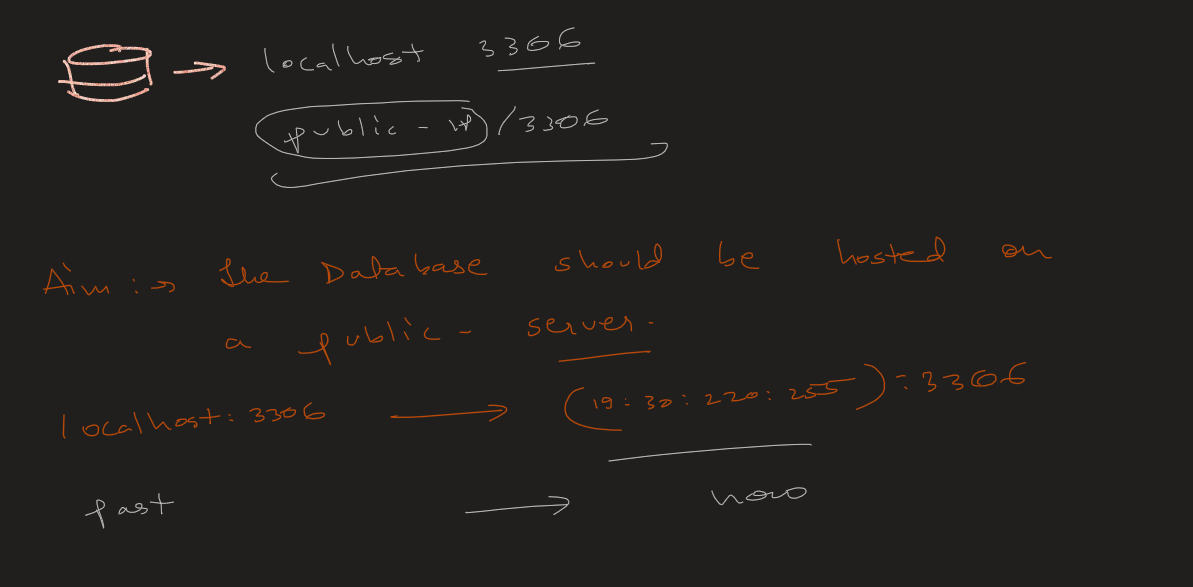 localhost 3306
public-ip/3306
Aim :→ The Database should be hosted on
a public- server.
localhost: 3306 → (19:30:220:255):3306
past → now